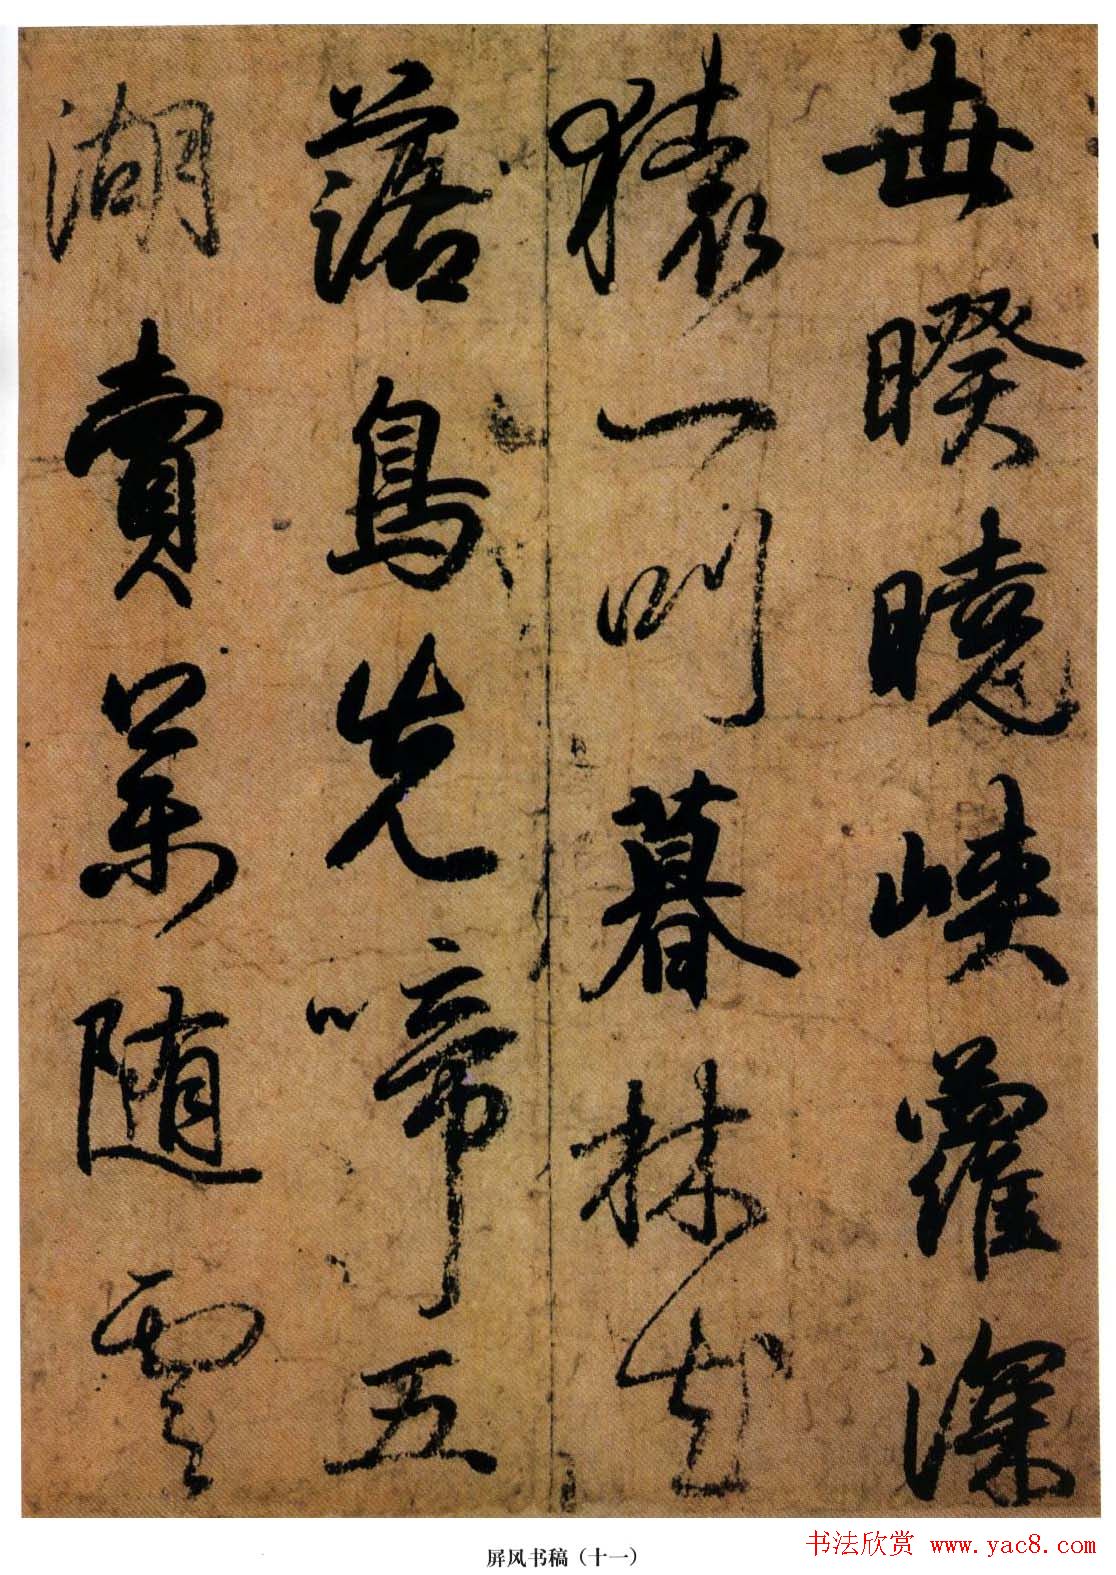 世暌曉峽蘿深
猿一叫暮林花
落鳥先啼五
湖賣藥随雲
屏风书稿（十一）
书法欣赏 www.yac8.com